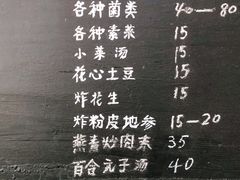 各种菌类 40—80
各种素菜 15
小菜汤 15
花心土豆 15
炸花生 15
炸粉皮地参 15—20
燕麦炒肉末 35
百合元子汤 40